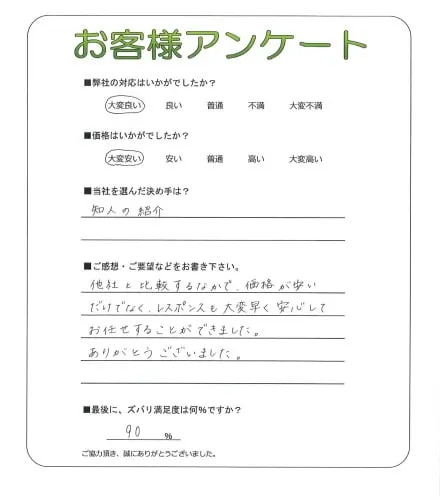 お客様アンケート
■弊社の対応はいかがでしたか？
大変良い 良い 普通 不満 大変不満
■価格はいかがでしたか？
大変安い 安い 普通 高い 大変高い
■当社を選んだ決め手は？
知人の紹介
■ご感想・ご要望などをお書き下さい。
他社と比較するなかで、価格が安い
だけでなく、レスポンスも大変早く安心して
お任せすることができました。
ありがとうございました。
■最後に、ズバリ満足度は何%ですか？
90 %
ご協力頂き、誠にありがとうございました。